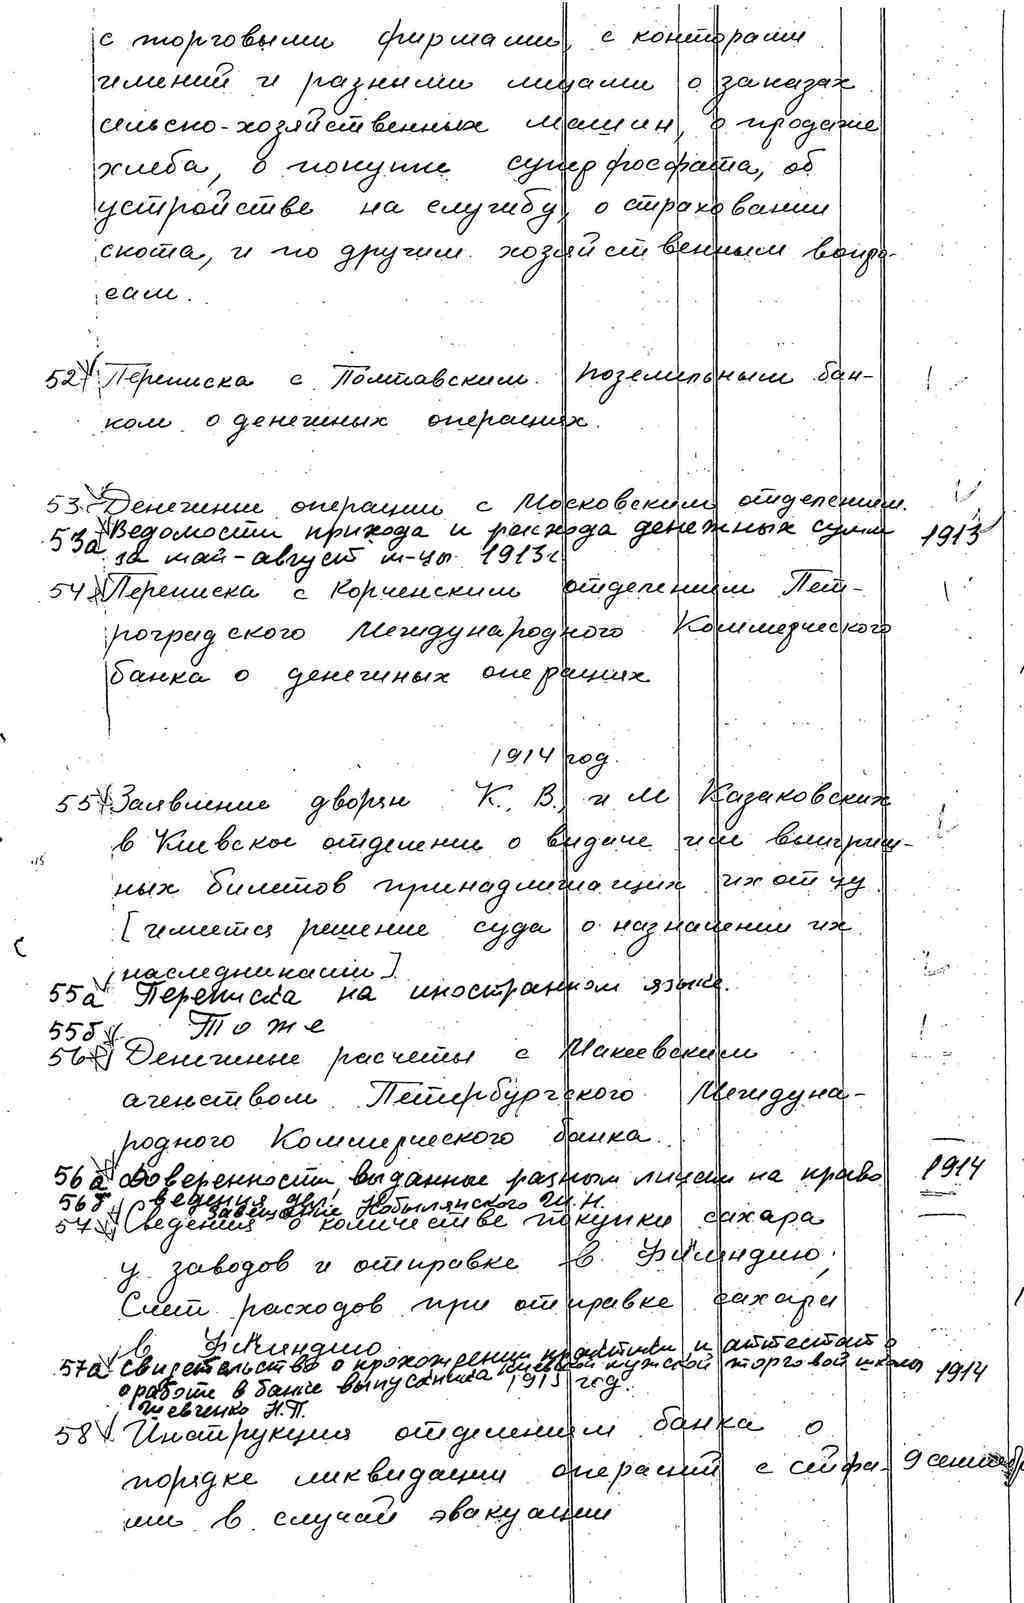 с торговыми фирмами, с конторами
имений и разными лицами о заказах
сельско-хозяйственных машин, о продаже
хлеба, о покупке суперфосфата, об
устройстве на службу, о страховании
скота, и по другим хозяйственным вопро-
сам.
52 Переписка с Полтавским поземельным бан-
ком о денежных операциях.
53. Денежные операции с Московским отделением.
53а Ведомости прихода и расхода денежных сумм 1913
за май-август м-цы 1913 г.
54 Переписка с Корченским отделением Пет-
роградского Международного Коммерческого
банка о денежных операциях
1914 год.
55 Заявление дворян К., В., и М Казаковских
в Киевское отделение о выдаче им выигрыш-
ных билетов принадлежащих их отцу
[имеется решение суда о назначении их
наследниками]
55а Переписка на иностранном языке.
55б То же
56 Денежные расчеты с Макеевским
агенством Петербургского Междуна-
родного Коммерческого банка.
56а Доверенности, выданные разным лицам на право 1914
ведения дел.
56б Завещание Кобылянского И.Н.
57 Сведения о количестве покупки сахара
у заводов и отправке в Финляндию;
Счет расходов при отправке сахара
в Финляндию
57а Свидетельство о прохождении практики и аттестат о
работе в банке выпускника Киевской мужской торговой школы 1914
Шевченко Н.П. 1913 год.
58 Инструкция отделениям банка о
порядке ликвидации операций с сейфа-
ми в случае эвакуации